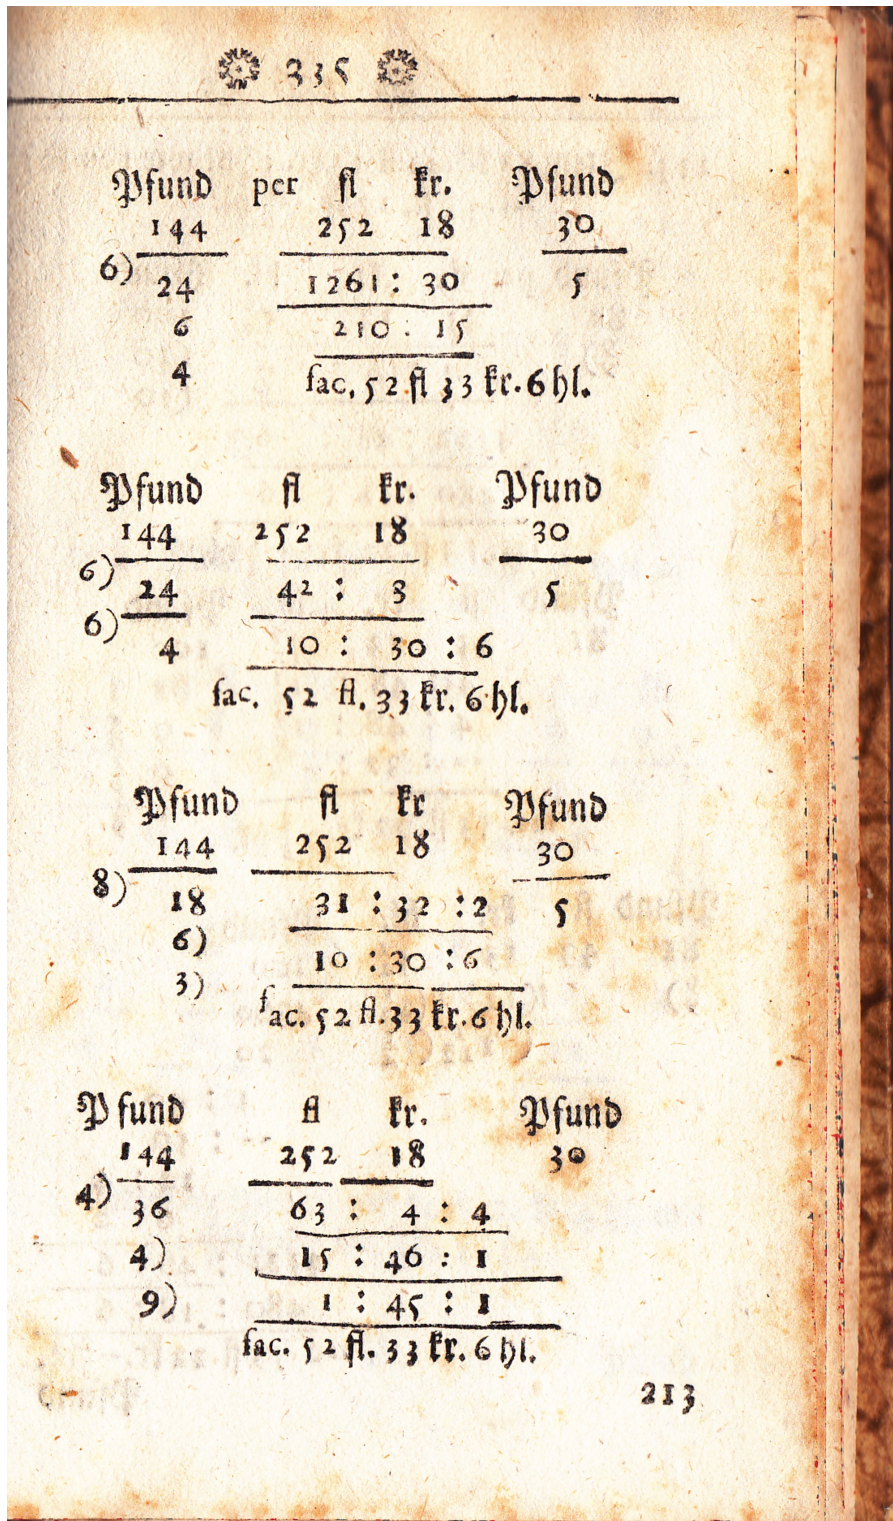 335
Pfund per fl kr. Pfund
144 252 18 30
6) 24 1261: 30 5
6 210 : 15
4 fac. 52 fl 33 kr. 6 hl.
Pfund fl kr. Pfund
144 252 18 30
6) 24 42 : 3 5
6) 4 10 : 30 : 6
fac. 52 fl. 33 kr. 6 hl.
Pfund fl kr Pfund
144 252 18 30
8) 18 31 : 32 : 2 5
6) 10 : 30 : 6
3)
fac. 52 fl. 33 kr. 6 hl.
Pfund fl kr. Pfund
144 252 18 30
4) 36 63 : 4 : 4
4) 15 : 46 : 1
9) 1 : 45 : 1
fac. 52 fl. 33 kr. 6 hl.
213